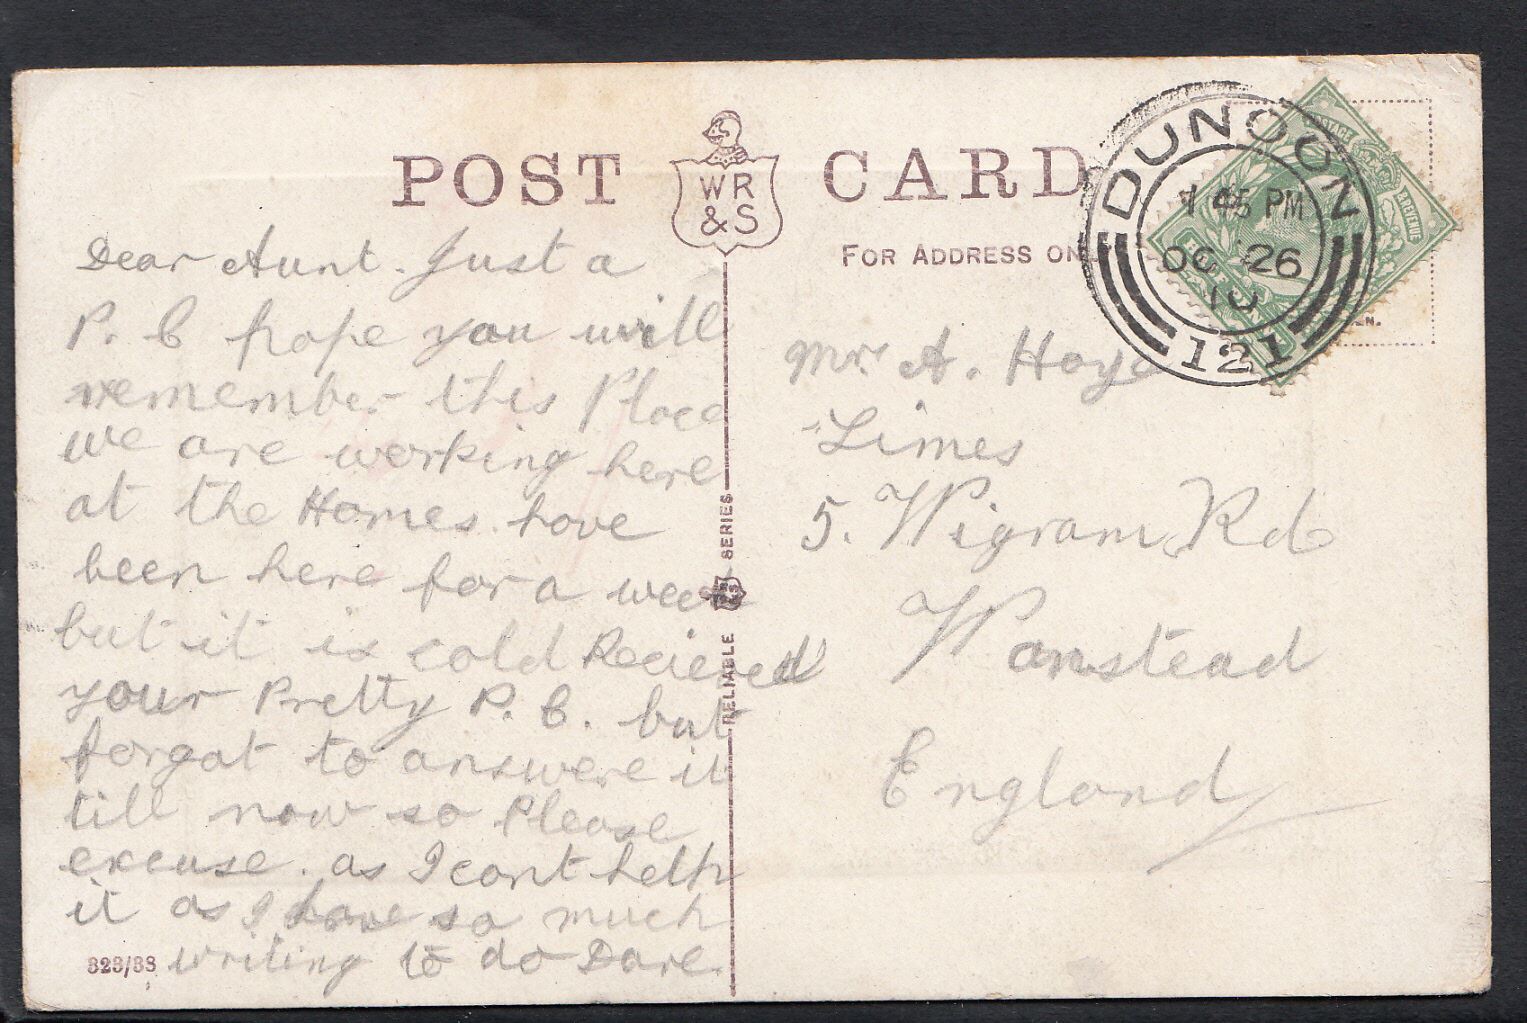 POST CARD
WR
& S
FOR ADDRESS ON
DUNOON
45 PM
OC 26
10
121
POSTAGE
REVENUE
Dear Aunt. Just a
P. C hope you will
remember this Place
we are working here
at the Homes. have
been here for a week
but it is cold Recieved
your Pretty P. C. but
forgot to answere it
till now so Please
excuse. as I cant help
it as I have so much
writing to do Dave.
Mrs A. Hoye
Limes
5. Wigram Rd
Wanstead
England
RELIABLE WR&S SERIES
823/83